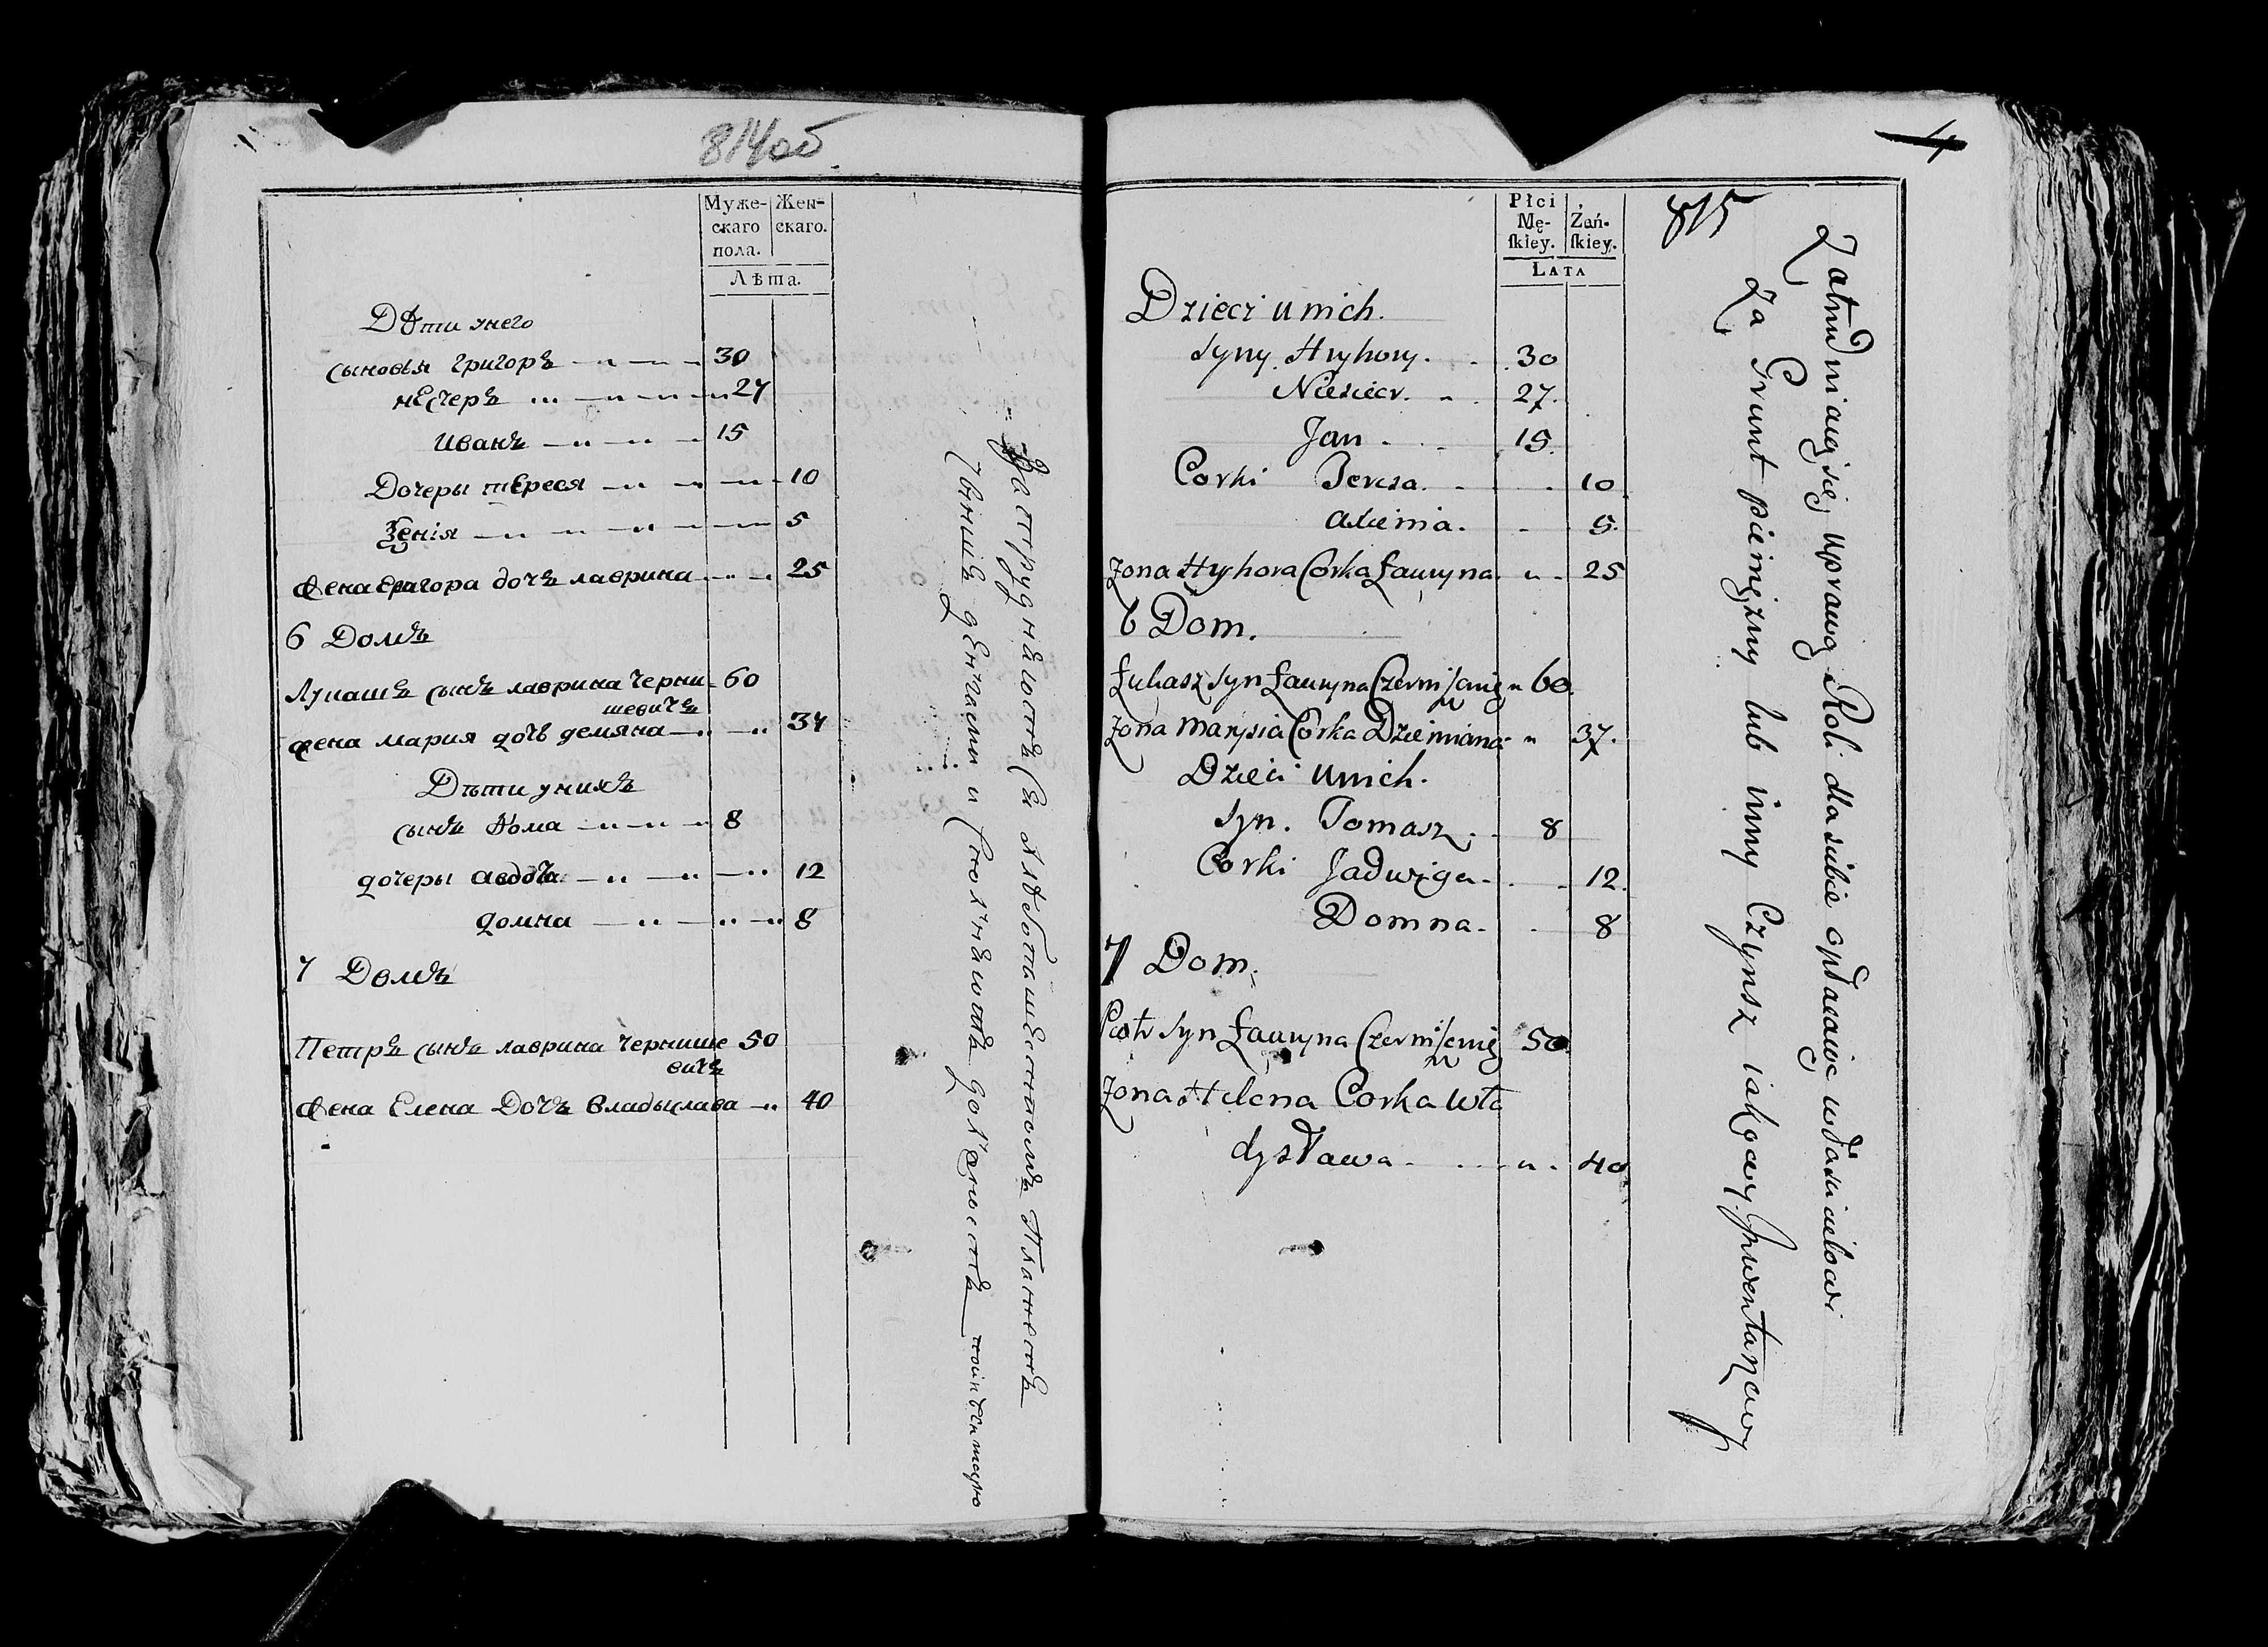 814об.
Муже-
скаго
пола.
Жен-
скаго.
Лѣта.
Дѣти унего
сыновья григоръ 30
несчеръ 27
иванъ 15
Дочеры тереся 10
Зенія 5
жена григора дочъ лаврина 25
6 Домъ
Лукашъ сынъ лаврина Черни- 60
шевичъ
жена мария дочъ демяна 37
Дѣти унихъ
сынъ Фома 8
дочеры авдоча 12
домна 8
7 Домъ
Петръ сынъ лаврина Чернише 50
вичъ
жена Елена Дочъ владыслава 40
Затрудняютъся
и
4
815
Płci
Mę-
ſkiey.
Żeń-
ſkiey.
LATA
Dzieci u nich.
syny Hryhory. 30
Niesiecr. 27.
Jan 15.
Corki Teresa. 10
axienia. 5.
Zona Hryhora Corka Ławryna 25
6 Dom.
Łukasz syn Ławryna Czerniſewig 60.
Zona Marysia Corka Dziemiana 37.
Dzieci u nich.
syn. Tomasz. 8
Corki Jadwiga 12.
Domna 8
7 Dom.
Piotr syn Ławryna Czerniſewig 50.
Zona Helena Corka Wła
dysława 40
Zatrudniaią się uprawą Roli dla siebie opłacaiąc właścicielowi
Za Grunt pieniężny lub inny Czynsz iakowy. Inwentarzowy